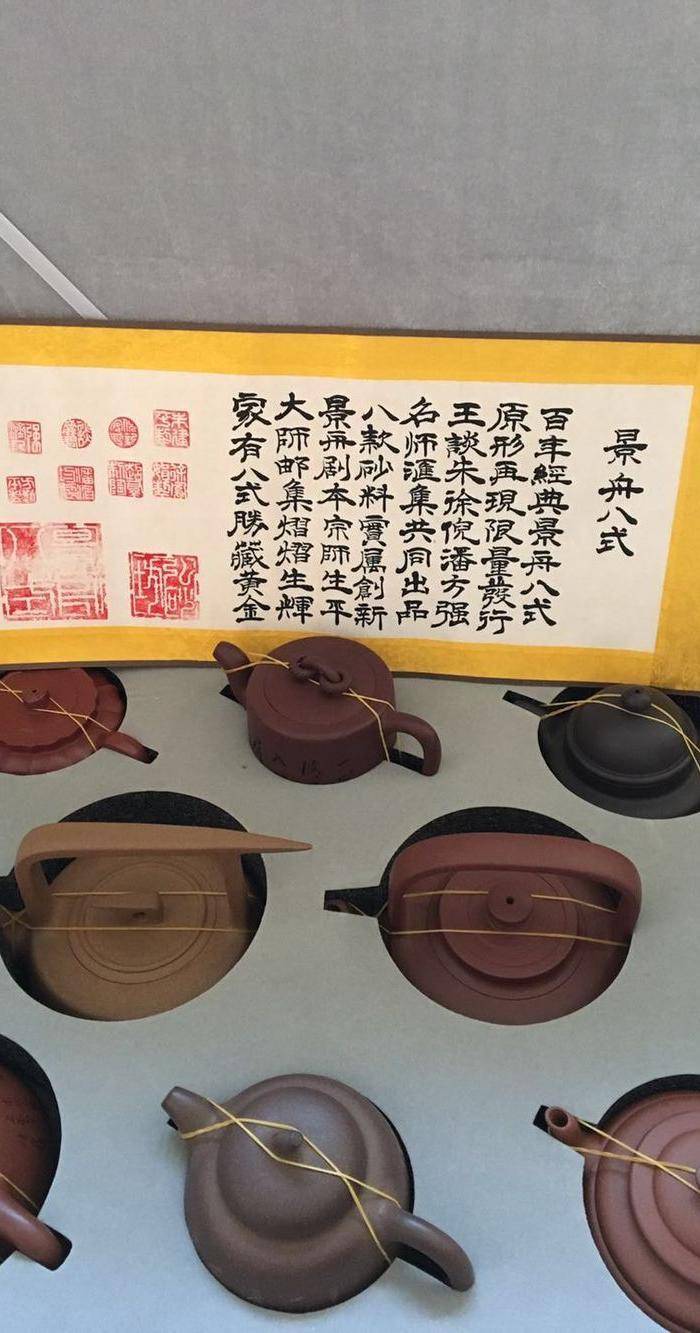 景舟八式
百年經典景舟八式
原形再現限量發行
王談朱徐倪潘方强
名师滙集共同出品
八款砂料實属創新
景舟剧本宗師生平
大師邮集熠熠生輝
家有八式勝藏黄金
弘砂坊